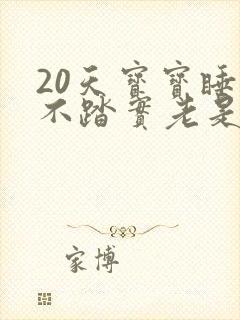 20天寳寳睡
不踏實老是
家博